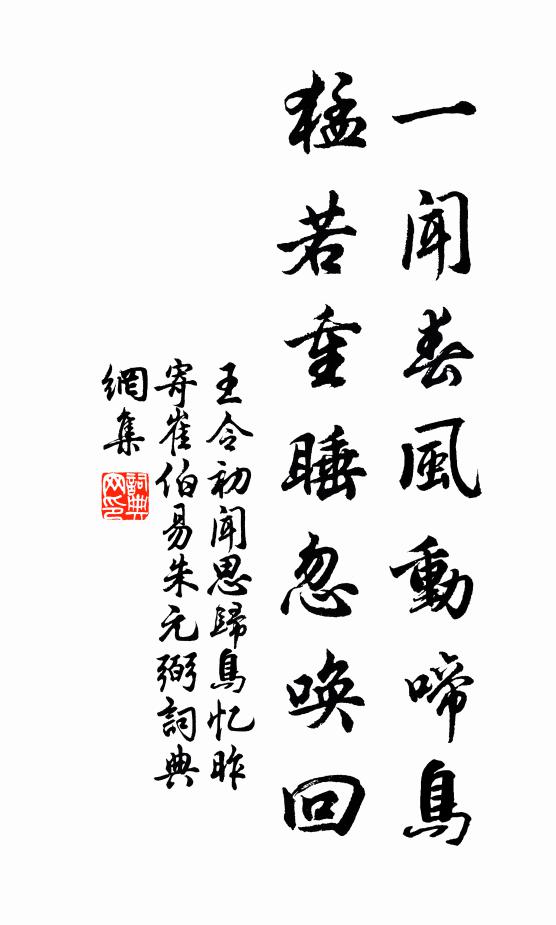 一聞春風動啼鳥
猛若重睡忽喚回
王令初聞思歸鳥忆昨
寄崔伯易朱元弼詞典
網集
詞典
网印